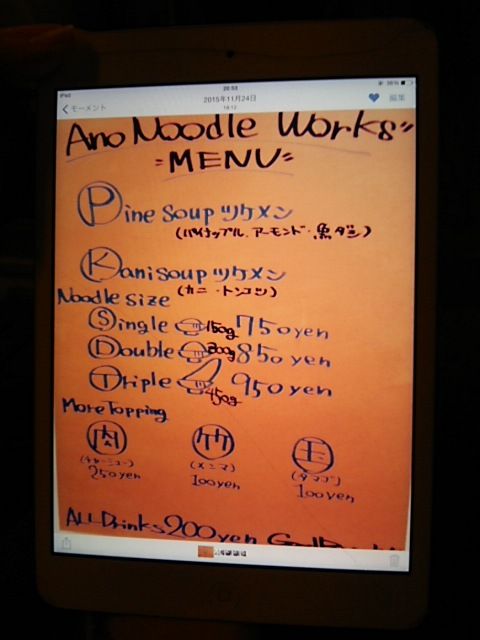 iPad 20:53 36%
モーメント 2015年11月24日 編集
19:12
Ano Noodle Works"
"MENU"
Pine Soup ツケメン
(パイナップル、アーモンド・魚ダシ)
Kani Soup ツケメン
(カニ・トンコツ)
Noodle Size
Single 150g 750yen
Double 300g 850yen
Triple 450g 950yen
More Topping
肉 竹 玉
(チャーシュー) (メンマ) (タマゴ)
250yen 100yen 100yen
ALL Drinks 200yen